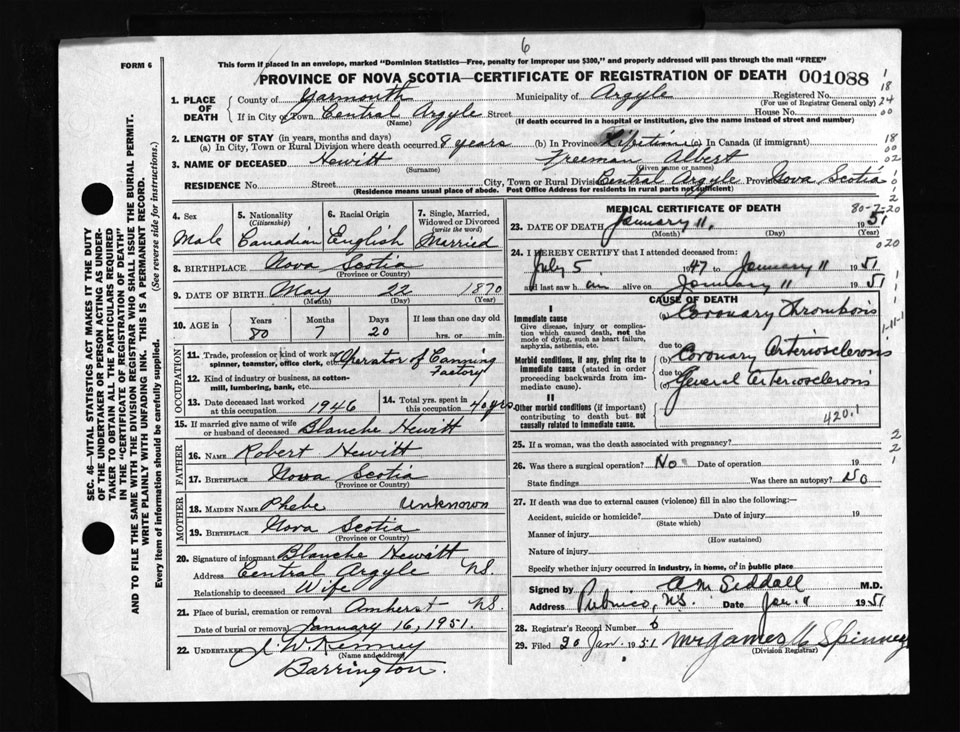 6
FORM 6
This form if placed in an envelope, marked "Dominion Statistics—Free, penalty for improper use $300," and properly addressed will pass through the mail "FREE"
PROVINCE OF NOVA SCOTIA—CERTIFICATE OF REGISTRATION OF DEATH 001088
1. PLACE OF DEATH
County of Yarmouth Municipality of Argyle Registered No.
(For use of Registrar General only)
If in City or Town Central Argyle Street House No.
(Name) (If death occurred in a hospital or institution, give the name instead of street and number)
2. LENGTH OF STAY (in years, months and days)
(a) In City, Town or Rural Division where death occurred 8 years (b) In Province Lifetime (c) In Canada (if immigrant)
3. NAME OF DECEASED Hewitt Freeman Albert
(Surname) (Given name or names)
RESIDENCE No. Street City, Town or Rural Division Central Argyle Province Nova Scotia
(Residence means usual place of abode. Post Office Address for residents in rural parts not sufficient)
4. Sex Male
5. Nationality (Citizenship) Canadian
6. Racial Origin English
7. Single, Married, Widowed or Divorced (write the word) Married
8. BIRTHPLACE Nova Scotia
(Province or Country)
9. DATE OF BIRTH May 22 1870
(Month) (Day) (Year)
10. AGE in Years Months Days If less than one day old
80 7 20 hrs. or min.
OCCUPATION
11. Trade, profession or kind of work as spinner, teamster, office clerk, etc. Operator of Canning Factory
12. Kind of industry or business, as cotton-mill, lumbering, bank, etc.
13. Date deceased last worked at this occupation 1946 14. Total yrs. spent in this occupation 40 yrs
15. If married give name of wife or husband of deceased Blanche Hewitt
FATHER
16. NAME Robert Hewitt
17. BIRTHPLACE Nova Scotia
(Province or Country)
MOTHER
18. MAIDEN NAME Phebe Unknown
19. BIRTHPLACE Nova Scotia
(Province or Country)
20. Signature of informant Blanche Hewitt
Address Central Argyle N.S.
Relationship to deceased Wife
21. Place of burial, cremation or removal Amherst N.S.
Date of burial or removal January 16, 1951.
22. UNDERTAKER W Kenney
(Name and address)
Barrington.
MEDICAL CERTIFICATE OF DEATH 80-7-20
23. DATE OF DEATH January 11, 1951
(Month) (Day) (Year)
24. I HEREBY CERTIFY that I attended deceased from:
July 5 1947 to January 11 1951
and last saw h im alive on January 11 1951
CAUSE OF DEATH
I
Immediate cause (a) Coronary Thrombosis
Give disease, injury or complication which caused death, not the mode of dying, such as heart failure, asphyxia, asthenia, etc.
due to
Morbid conditions, if any, giving rise to immediate cause (stated in order proceeding backwards from immediate cause).
(b) Coronary Arteriosclerosis
due to
(c) General arteriosclerosis
II
Other morbid conditions (if important) contributing to death but not causally related to immediate cause.
420.1
25. If a woman, was the death associated with pregnancy?
26. Was there a surgical operation? No Date of operation 19
State findings Was there an autopsy? No
27. If death was due to external causes (violence) fill in also the following:—
Accident, suicide or homicide? Date of injury 19
(State which)
Manner of injury
(How sustained)
Nature of injury
Specify whether injury occurred in industry, in home, or in public place
Signed by A M Siddall M.D.
Address Pubnico, N.S. Date Jan. 11 1951
28. Registrar's Record Number 6
29. Filed 20 Jan. 1951 Mrs James Spinney
(Division Registrar)
SEC. 46—VITAL STATISTICS ACT MAKES IT THE DUTY
OF THE UNDERTAKER OR PERSON ACTING AS UNDER-
TAKER TO OBTAIN ALL THE PARTICULARS REQUIRED
IN THE "CERTIFICATE OF REGISTRATION OF DEATH"
AND TO FILE THE SAME WITH THE DIVISION REGISTRAR WHO SHALL ISSUE THE BURIAL PERMIT.
WRITE PLAINLY WITH UNFADING INK. THIS IS A PERMANENT RECORD.
Every item of information should be carefully supplied. (See reverse side for instructions.)